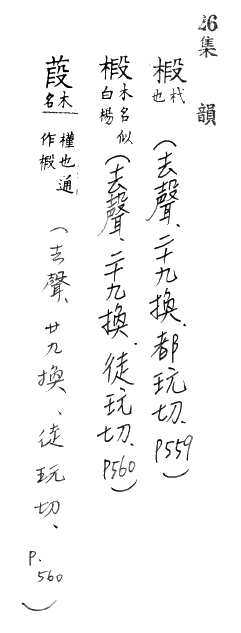 26集韻
椴 杙也（去聲、二十九換．都玩切．P559）
椴 木名似白楊（去聲、二十九換．徒玩切．P560）
葮 木名 槿也通作椴（去聲、廿九換、徒玩切、P．560）